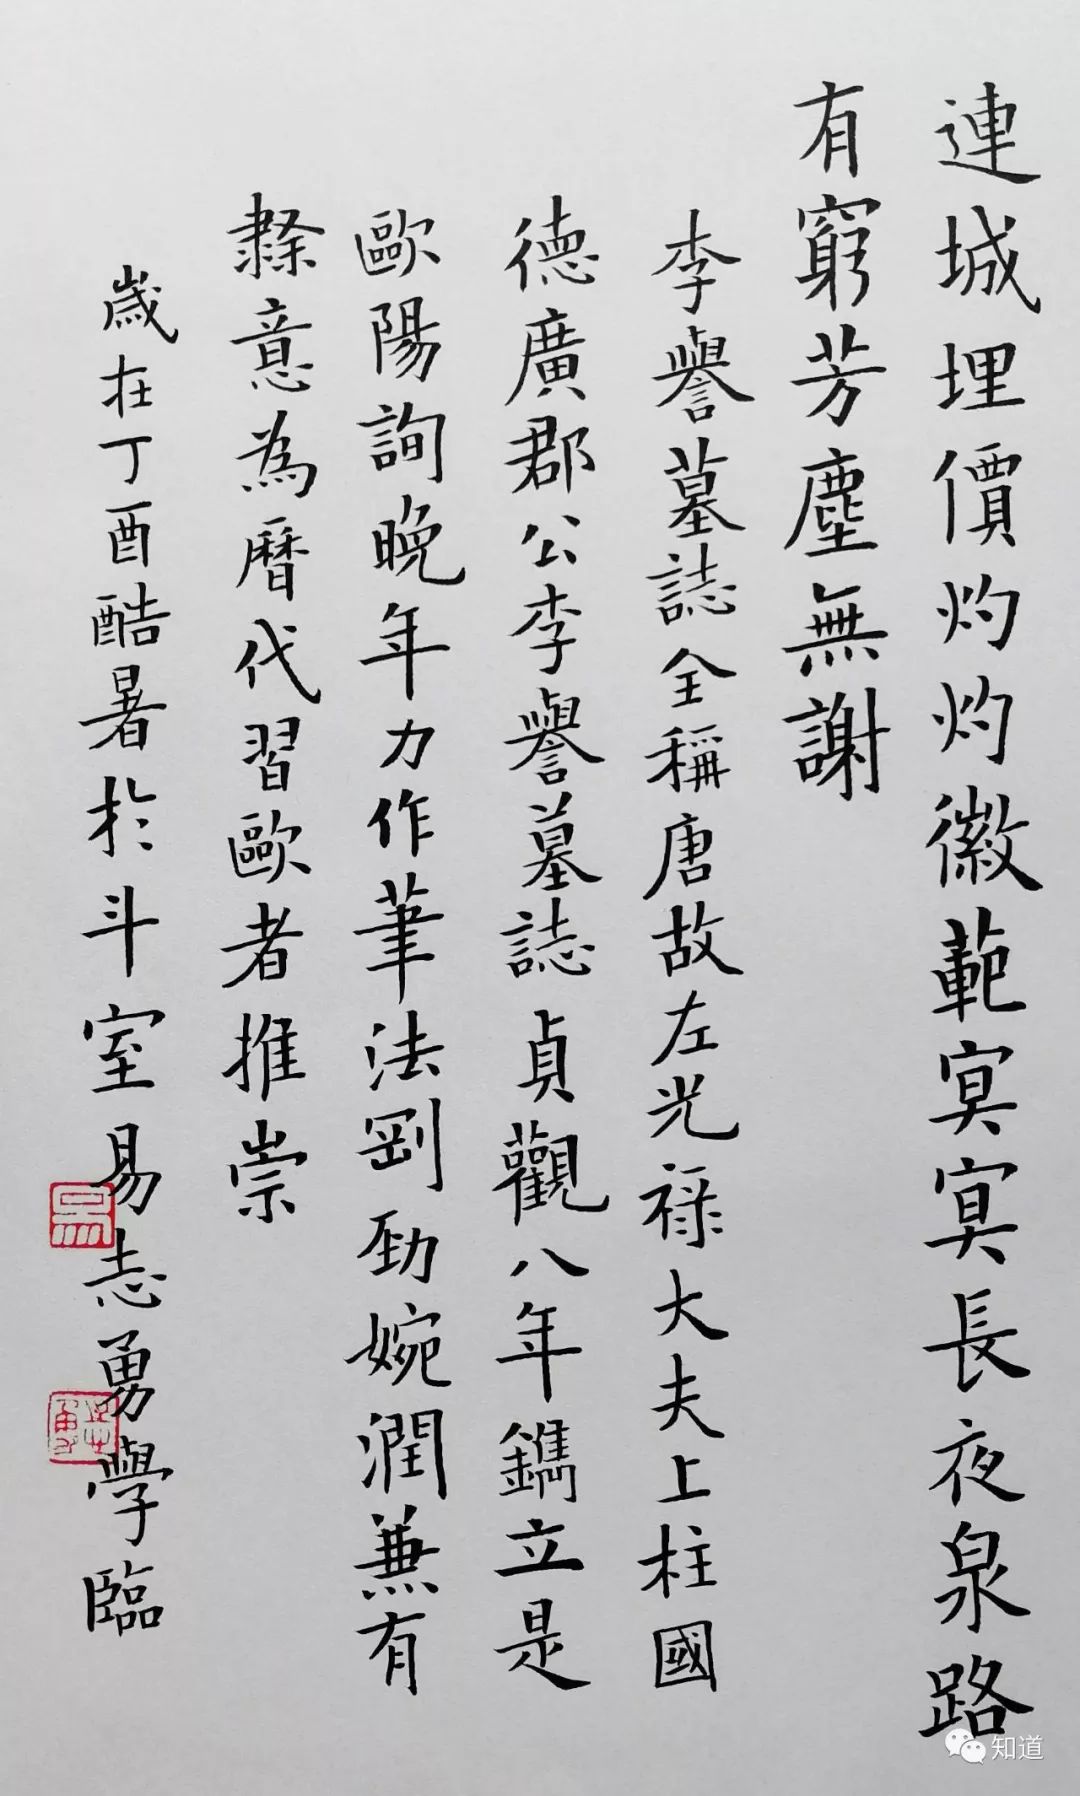 連城埋價灼灼徽範寞寞長夜泉路
有窮芳塵無謝
李譽墓誌全稱唐故左光祿大夫上柱國
德廣郡公李譽墓誌貞觀八年鐫立是
歐陽詢晚年力作筆法剛勁婉潤兼有
隸意為曆代習歐者推崇
歲在丁酉酷暑於斗室易志勇學臨
易
志勇
知道